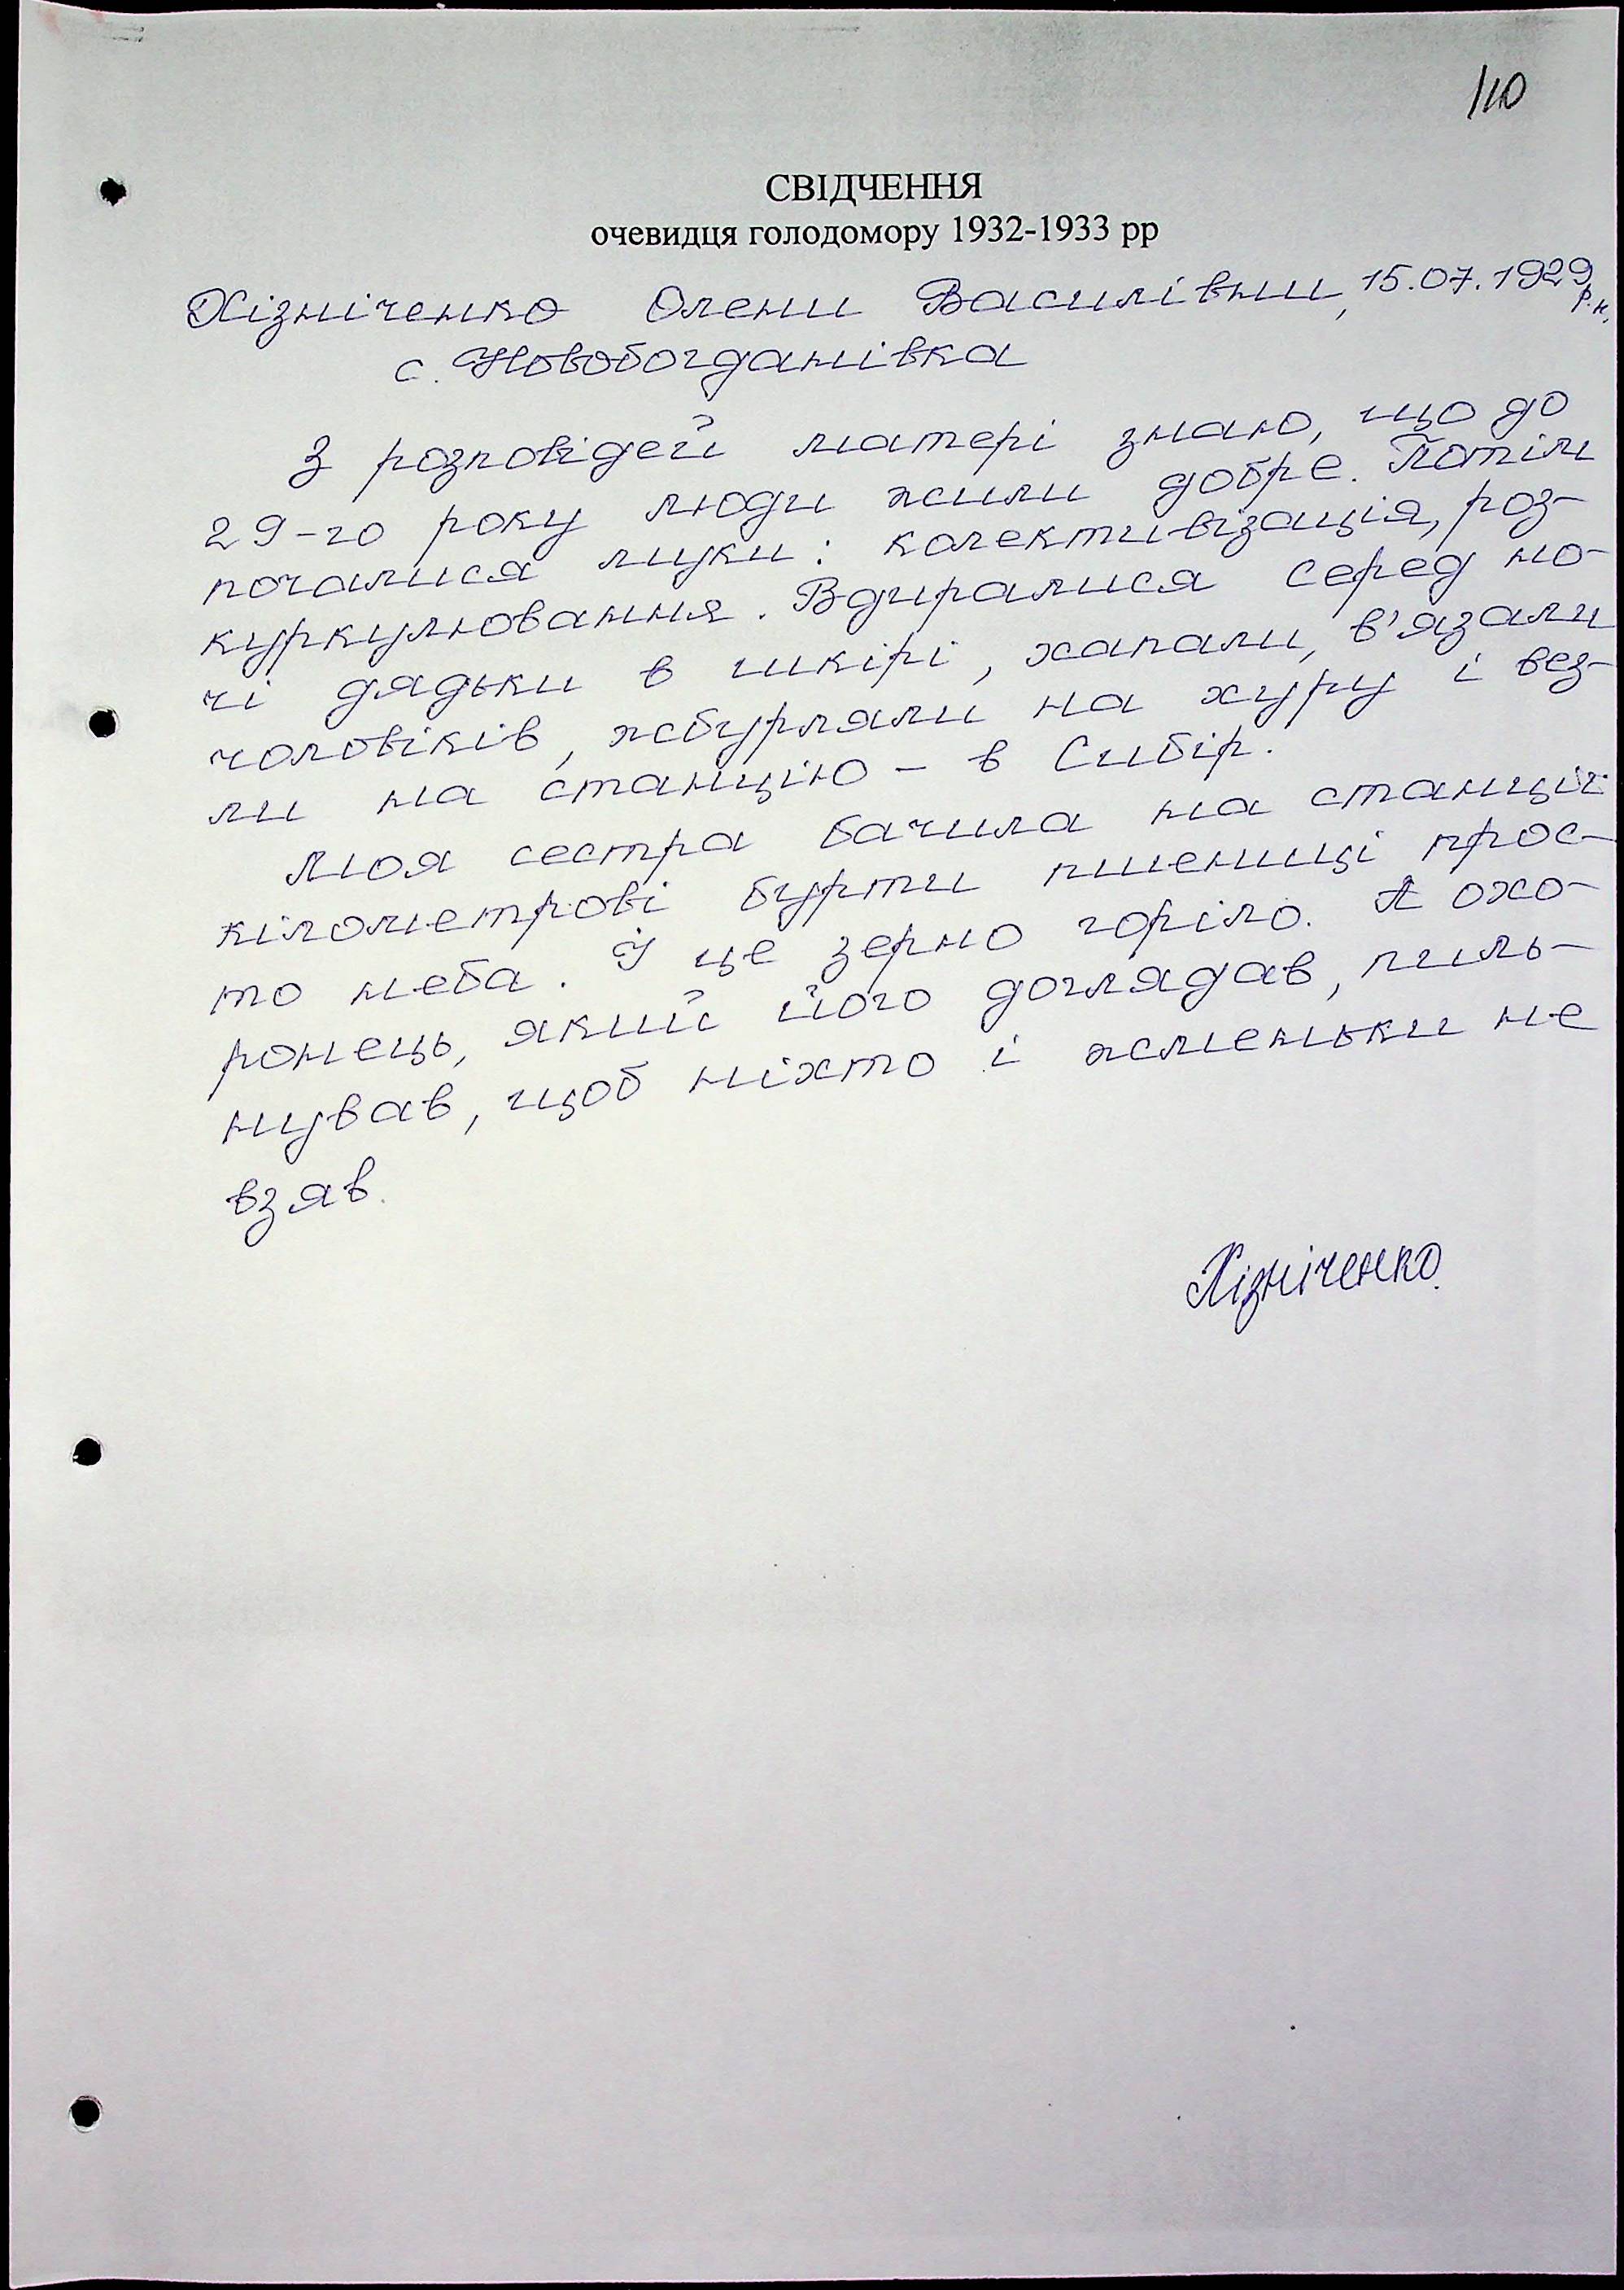 110
СВІДЧЕННЯ
очевидця голодомору 1932-1933 рр
Хізніченко Олени Василівни, 15.07.1929 р.н.
с. Новобогданівка
З розповідей матері знаю, що до
29-го року люди жили добре. Потім
почалися муки: колективізація, роз-
куркулювання. Вдиралися серед но-
чі дядьки в шкірі, хапали, в'язали
чоловіків, жбурляли на хуру і вез-
ли на станцію – в Сибір.
Моя сестра бачила на станції
кілометрові бурти пшениці прос-
то неба. І це зерно горіло. А охо-
ронець, який його доглядав, пиль-
нував, щоб ніхто і жменьки не
взяв.
Хізніченко